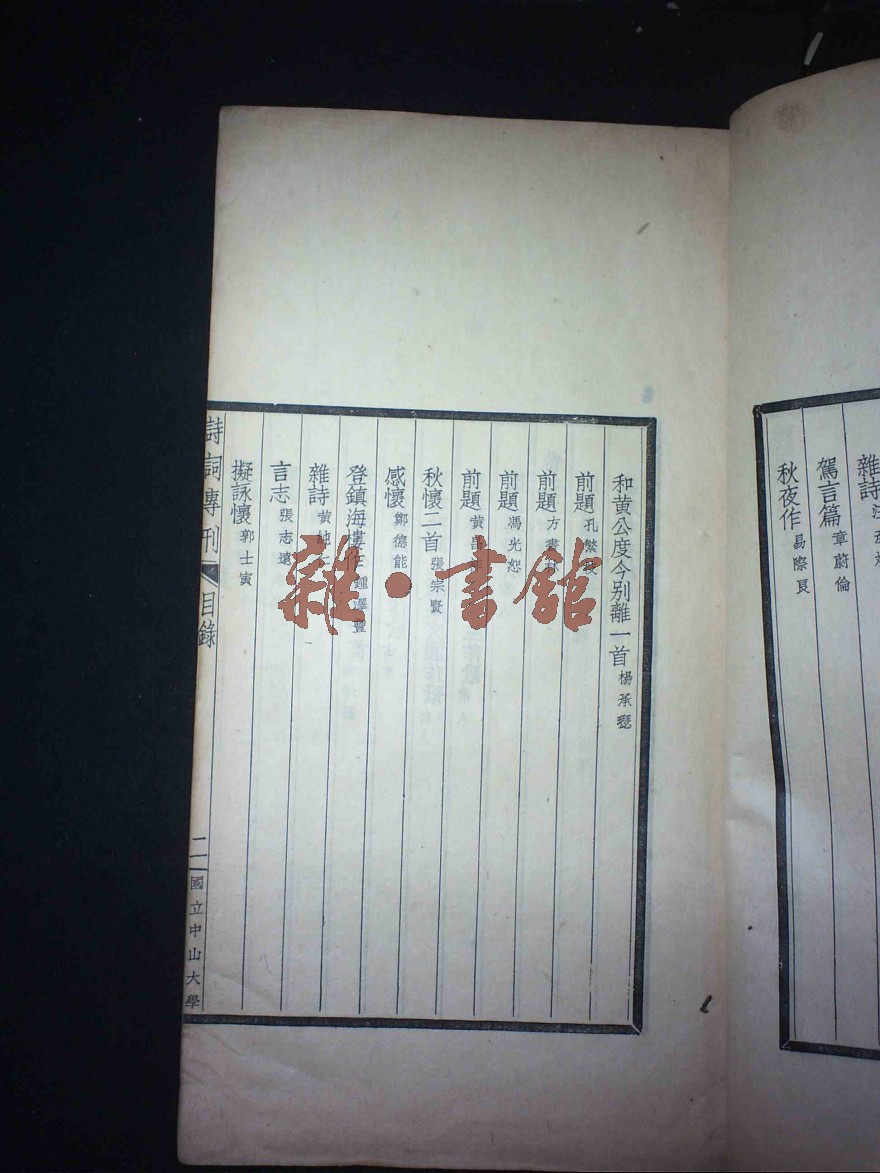 雜詩
駕言篇 章蔚倫
秋夜作 易際良
和黃公度今別離一首 楊承瑟
前題 孔繁
前題 方
前題 馮光恕
前題 黃昌
秋懷二首 張宗賢
感懷 鄭德能
登鎮海樓 鍾澤豐
雜詩 黃純
言志 張志遠
擬詠懷 郭士寅
詩詞專刊 目錄 二 國立中山大學
雜·書館